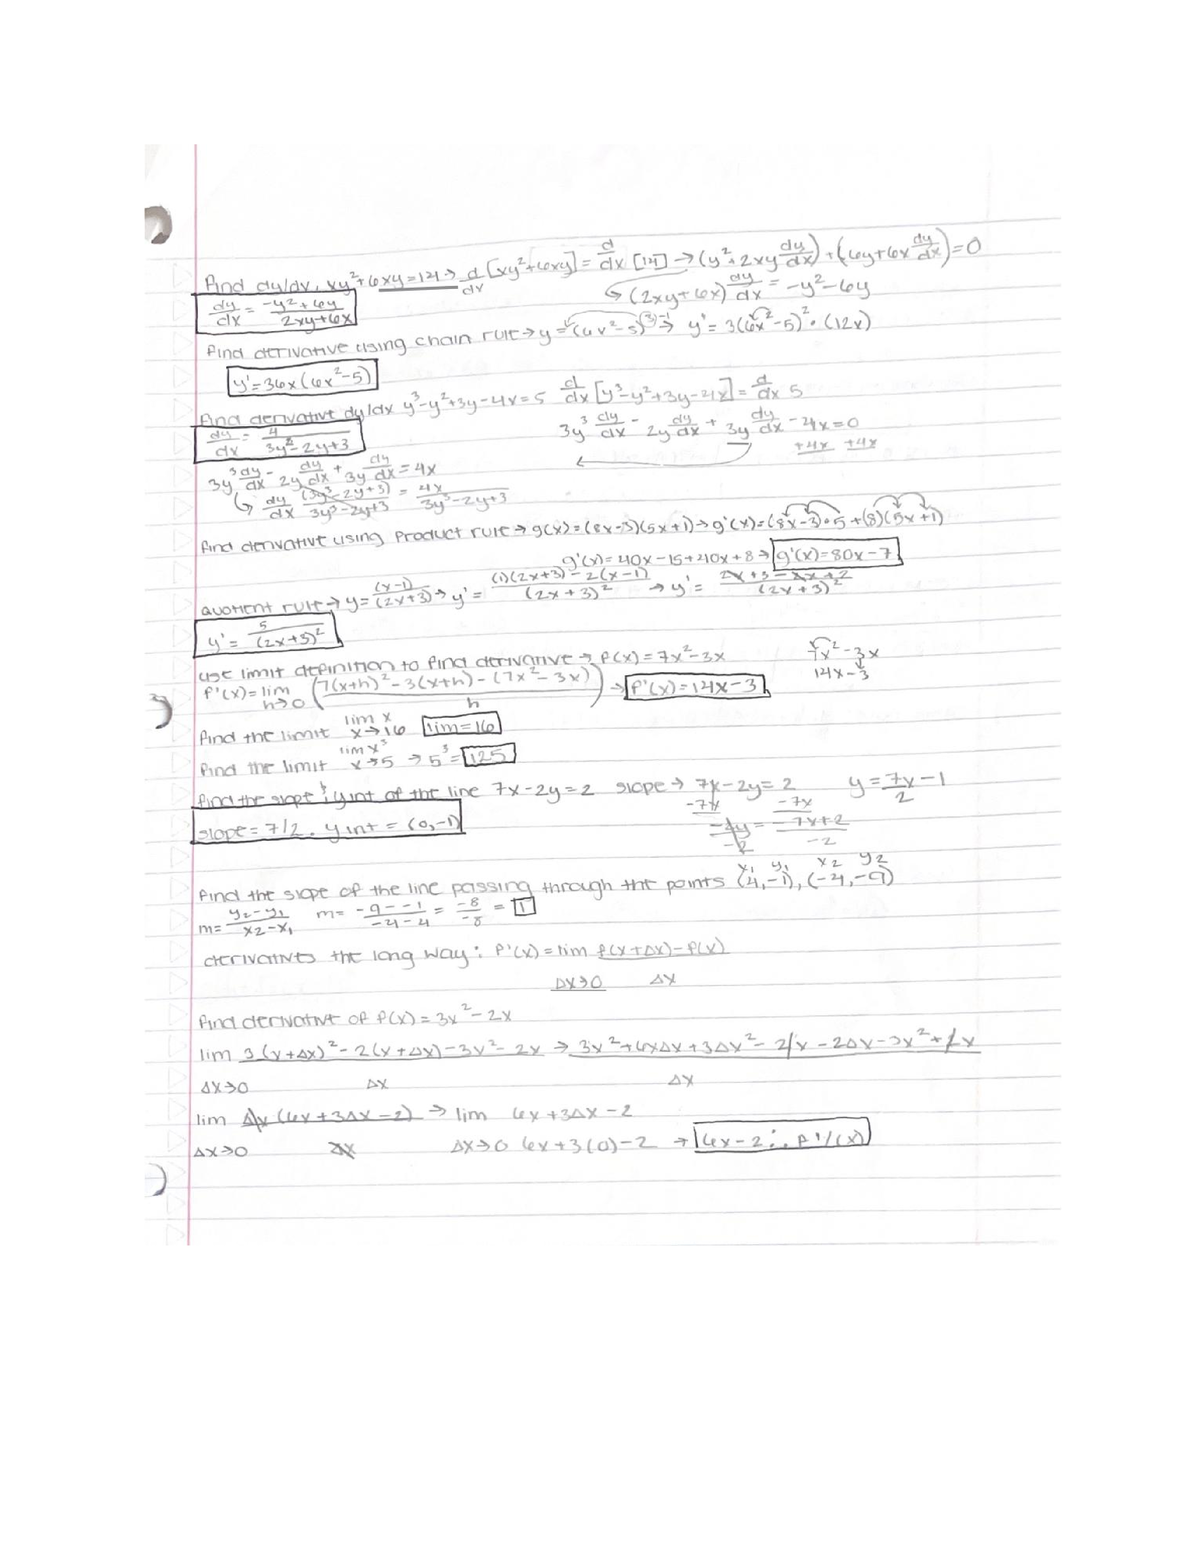 Find dy/dx, xy²+6xy=14 → d/dx [xy²+6xy] = d/dx [14] → (y²+2xy dy/dx) + (6y+6x dy/dx) = 0
↳ (2xy+6x) dy/dx = -y²-6y
dy/dx = -y²+6y / 2xy+6x
find derivative using chain rule → y = (6x²-5)³ ⁽³⁾⁻¹ → y' = 3(6x²-5)² · (12x)
y' = 36x(6x²-5)
Find derivative dy/dx y³-y²+3y-4x=5 d/dx [y³-y²+3y-4x] = d/dx 5
dy/dx = 4 / 3y²-2y+3
3y³ dy/dx - 2y dy/dx + 3y dy/dx - 4x = 0
+4x +4x
3y³ dy/dx - 2y dy/dx + 3y dy/dx = 4x
↳ dy/dx (3y³-2y+3) / 3y³-2y+3 = 4x / 3y³-2y+3
find derivative using Product rule → g(x) = (8x-3)(5x+1) → g'(x) = (8x-3)·5+(8)(5x+1)
g'(x) = 40x-15+40x+8 → g'(x) = 80x-7
quotient rule → y = (x-1)/(2x+3) → y' = (1)(2x+3)-2(x-1) / (2x+3)² → y' = 2x+3-2x+2 / (2x+3)²
y' = 5 / (2x+3)²
use limit definition to find derivative → f(x) = 7x²-3x 7x²-3x
14x-3
f'(x) = lim h→0 (7(x+h)²-3(x+h)-(7x²-3x) / h) → f'(x) = 14x-3
find the limit lim x x→16 lim=16
find the limit lim x³ x→5 → 5³ = 125
find the slope & y int of the line 7x-2y=2 slope → 7x-2y=2 y = 7x/2 - 1
-7x -7x
slope = 7/2, y int = (0,-1)
-2y/-2 = -7x+2/-2
x₁ y₁ x₂ y₂
find the slope of the line passing through the points (4,-1), (-4,-9)
m = y₂-y₁ / x₂-x₁ m = -9--1 / -4-4 = -8/-8 = 1
derivatives the long way: f'(x) = lim f(x+Δx)-f(x)
Δx→0 Δx
find derivative of f(x) = 3x²-2x
lim 3(x+Δx)²-2(x+Δx)-3x²-2x → 3x²+6xΔx+3Δx²-2x-2Δx-3x²+2x
Δx→0 Δx Δx
lim Δx(6x+3Δx-2) → lim 6x+3Δx-2
Δx→0 Δx Δx→0 6x+3(0)-2 → 6x-2 ∴ f'(x)